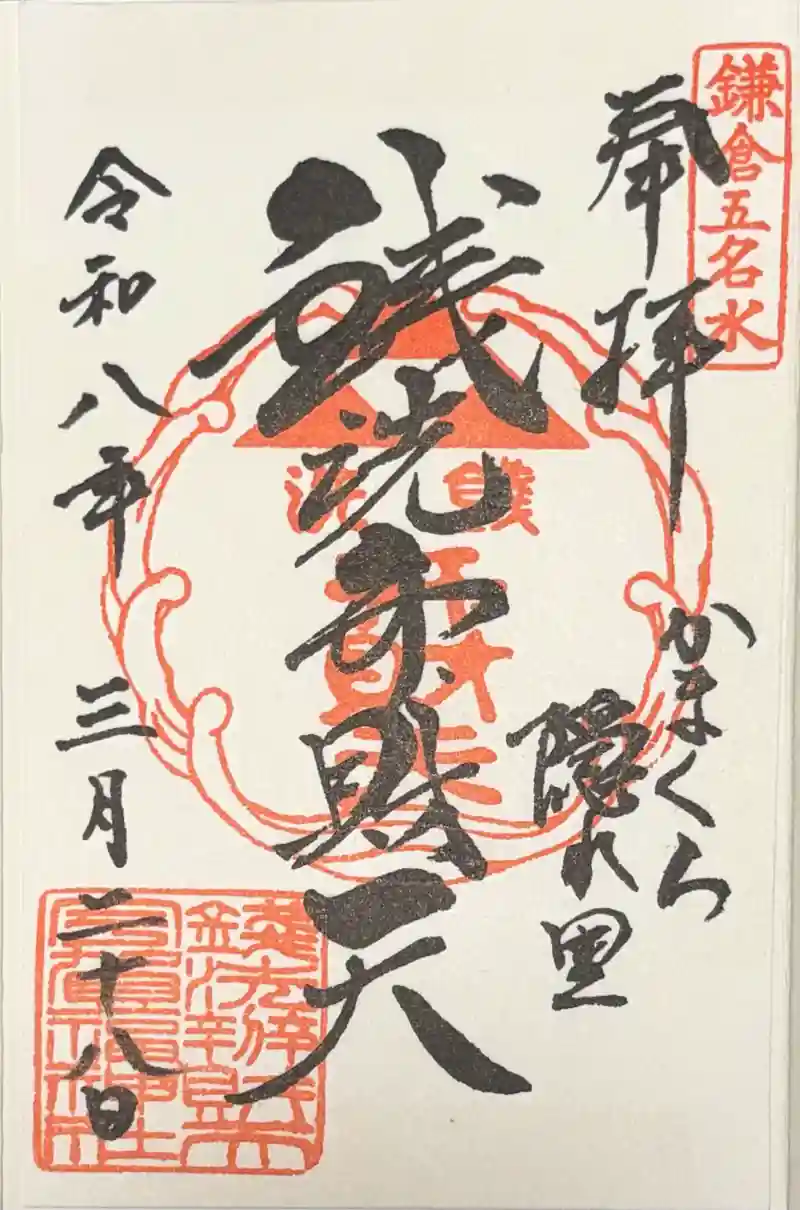 鎌倉五名水
奉拝
かまくら
隠れ里
銭洗弁財天
令和八年 三月 二十八日